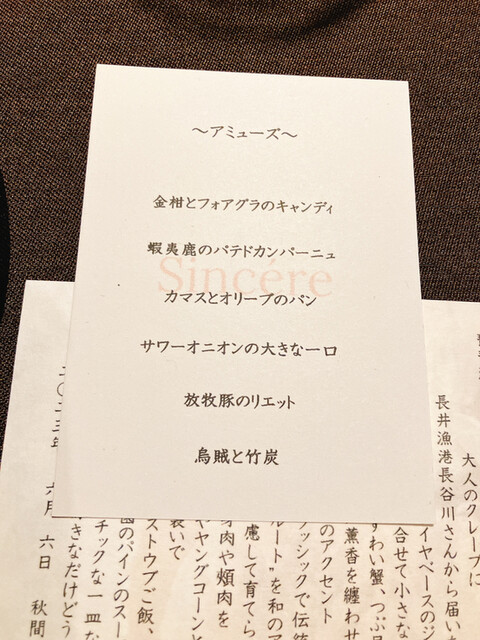 ～アミューズ～
金柑とフォアグラのキャンディ
蝦夷鹿のパテドカンパーニュ
Sincére
カマスとオリーブのパン
サワーオニオンの大きな一口
放牧豚のリエット
烏賊と竹炭
大人のクレープに
長井漁港長谷川さんから届い
イヤベースのジ
合せて小さな
ずわい蟹、つぶ貝
薫香を纏わせ
のアクセント
ラシックで伝統
ルート”を和のア
慮して育てら
身肉や頬肉を
ヤングコーンと
装いで
ストウブご飯、
国のパインのスー
チックな一皿な
きなだけどう
二〇二三年 六月 六日 秋間